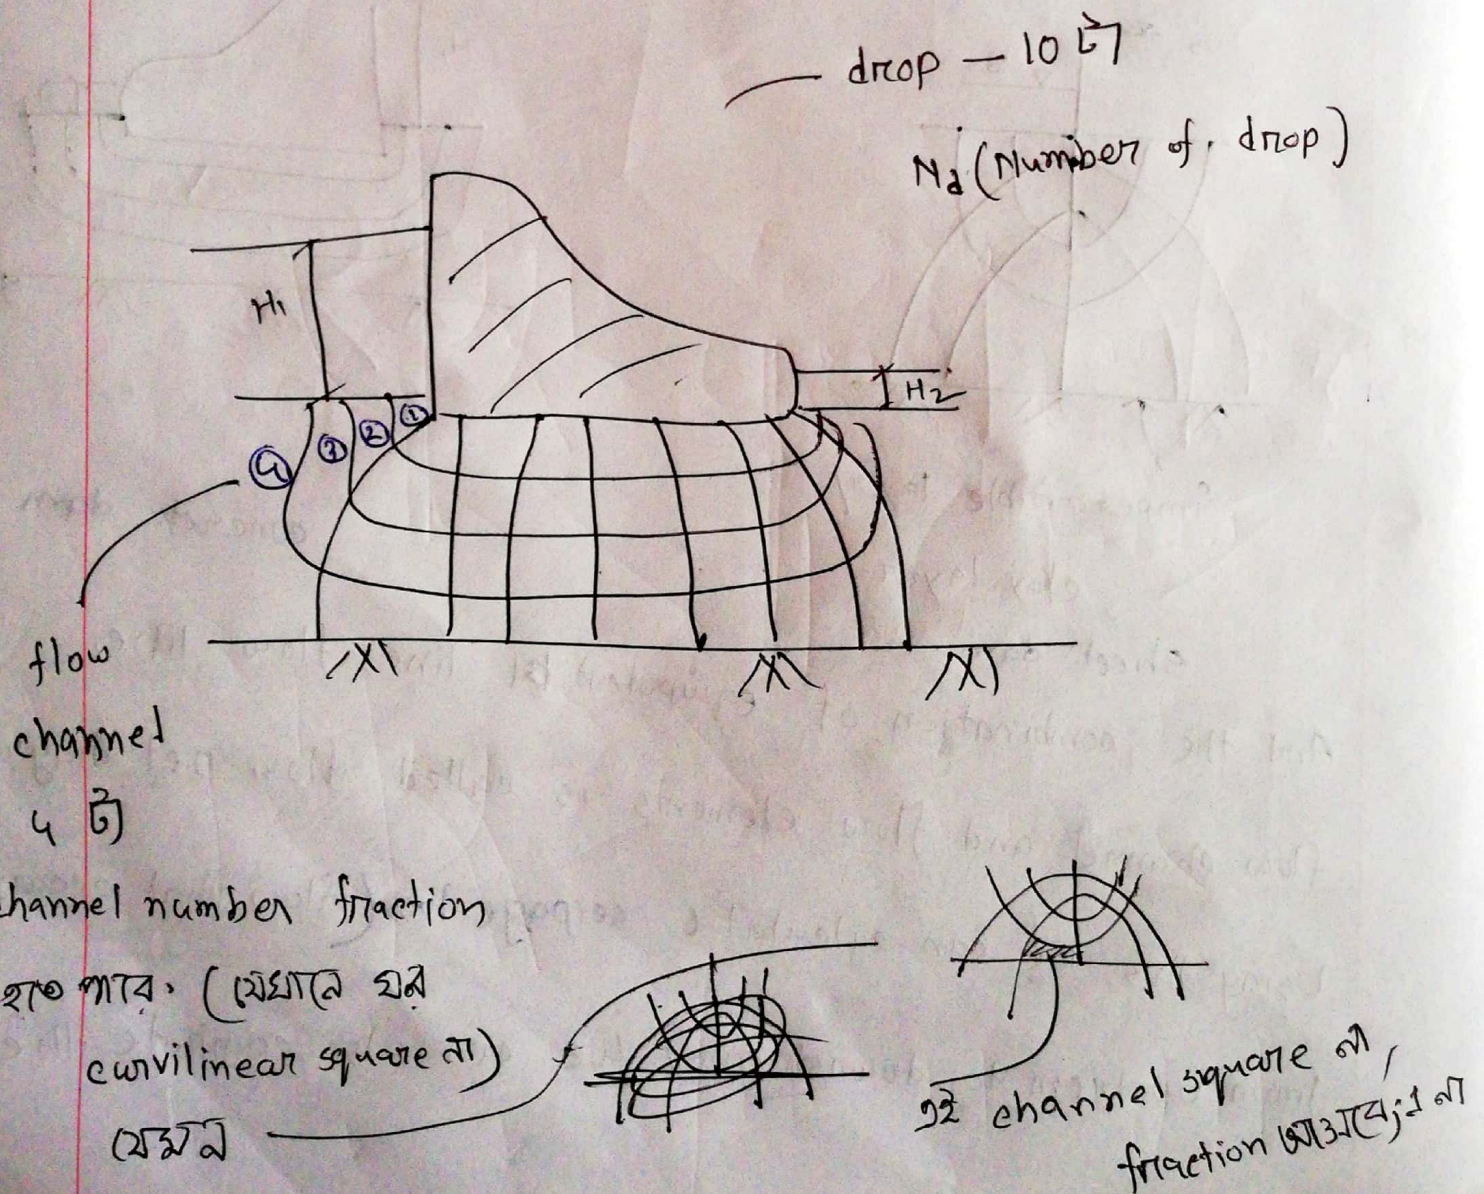 drop – 10 টা
Nd (Number of drop)
H1
H2
① 
②
③
④
flow
channel
4 টা
channel number fraction
হতে পারে. (যেখানে ঘর
curvilinear square না)
যেমন
এই channel square না,
fraction আসবে; 1 না